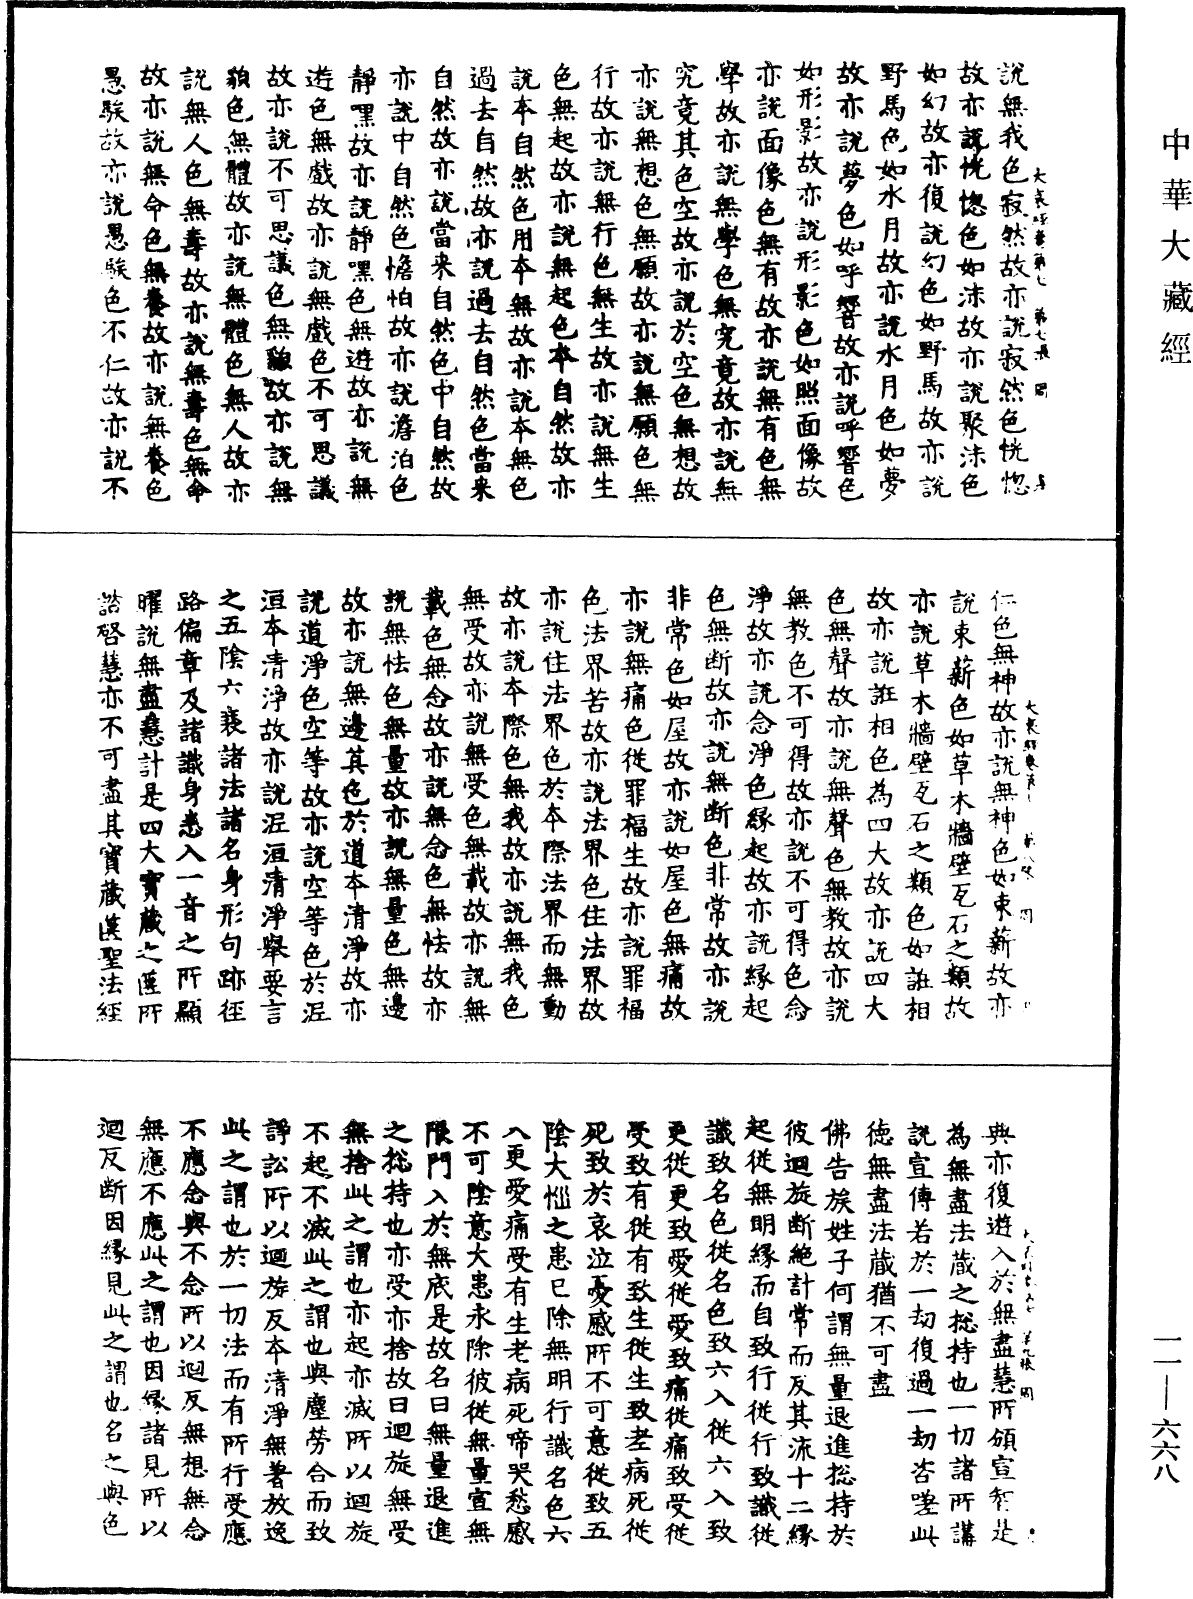 中華大藏經
說無我色寂然故亦說寂然色恍惚
故亦說恍惚色如沫故亦說聚沫色
如幻故亦復說幻色如野馬故亦說
野馬色如水月故亦說水月色如夢
故亦說夢色如呼響故亦說呼響色
如形影故亦說形影色如照面像故
亦說面像色無有故亦說無有色無
學故亦說無學色無究竟故亦說無
究竟其色空故亦說於空色無想故
亦說無想色無願故亦說無願色無
行故亦說無行色無生故亦說無生
色無起故亦說無起色本自然故亦
說本自然色用本無故亦說本無色
過去自然故亦說過去自然色當来
自然故亦說當来自然色中自然故
亦說中自然色憺怕故亦說澹泊色
靜嘿故亦說靜嘿色無遊故亦說無
遊色無戲故亦說無戲色不可思議
故亦說不可思議色無貌故亦說無
貌色無體故亦說無體色無人故亦
說無人色無壽故亦說無壽色無命
故亦說無命色無養故亦說無養色
愚騃故亦說愚騃色不仁故亦說不
仁色無神故亦說無神色如束薪故亦
說束薪色如草木牆壁瓦石之類故
亦說草木牆壁瓦石之類色如誑相
故亦說誑相色為四大故亦說四大
色無聲故亦說無聲色無教故亦說
無教色不可得故亦說不可得色念
淨故亦說念淨色緣起故亦說緣起
色無断故亦說無断色非常故亦說
非常色如屋故亦說如屋色無痛故
亦說無痛色從罪福生故亦說罪福
色法界苦故亦說法界色住法界故
亦說住法界色於本際法界而無動
故亦說本際色無我故亦說無我色
無受故亦說無受色無載故亦說無
載色無念故亦說無念色無怯故亦
說無怯色無量故亦說無量色無邊
故亦說無邊其色於道本清淨故亦
說道淨色空等故亦說空等色於泥
洹本清淨故亦說泥洹清淨舉要言
之五陰六衰諸法諸名身形句跡徑
路偏章及諸識身悉入一音之所顯
曜說無盡慧計是四大寶藏之匯所
諮啓慧亦不可盡其寶藏篋聖法經
典亦復遊入於無盡慧所頒宣智是
為無盡法藏之揔持也一切諸所講
說宣傳若於一劫復過一劫咨嗟此
德無盡法藏猶不可盡
佛告族姓子何謂無量退進揔持於
彼迴旋断絕計常而反其流十二緣
起從無明緣而自致行從行致識從
識致名色從名色致六入從六入致
更從更致愛從愛致痛從痛致受從
受致有從有致生從生致老病死從
死致於哀泣憂慼所不可意從致五
陰大惱之患已除無明行識名色六
入更愛痛受有生老病死啼哭愁慼
不可陰意大患永除彼從無量宣無
限門入於無底是故名曰無量退進
之揔持也亦受亦捨故曰迴旋無受
無捨此之謂也亦起亦滅所以迴旋
不起不滅此之謂也與塵勞合而致
諍訟所以迴旋反本清淨無著放逸
此之謂也於一切法而有所行受應
不應念與不念所以迴反無想無念
無應不應此之謂也因緣諸見所以
迴反断因緣見此之謂也名之與色
一一—六六八